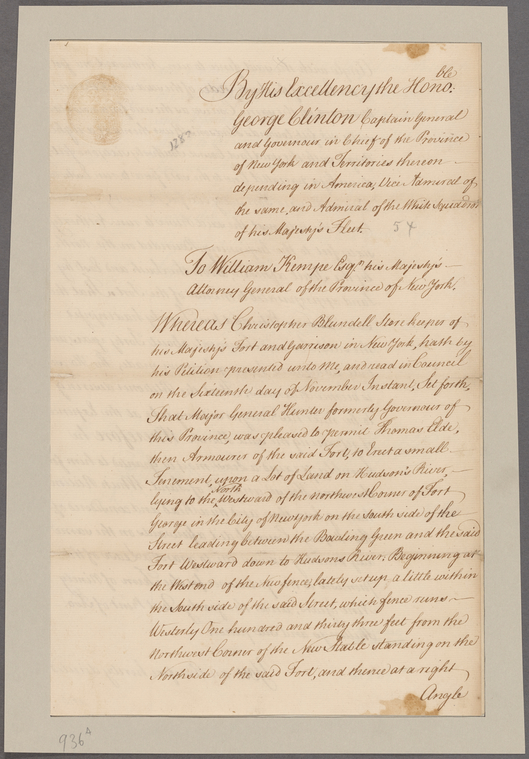 By His Excellency the Hono:ble
George Clinton Captain General
and Governour in Chief of the Province
of New York and Territories thereon
depending in America, Vice Admiral of
the same, and Admiral of the White Squadron
of his Majesty's Fleet.
5 x
1280
To William Kempe Esqr. his Majesty's
Attorney General of the Province of New York.
Whereas Christopher Blundell Store keeper of
his Majesty's Fort and Garrison in New York, hath by
his Petition presented unto me, and read in Council
on the Sixteenth day of November Instant, Set forth,
That Major General Hunter formerly Governour of
this Province, was pleased to permit Thomas Elde,
then Armourer of the said Fort, to Erect a small
Tenement, upon a Lot of Land on Hudson's River,
lying to the North Westward of the Northwest Corner of Fort
George in the City of New York on the South side of the
Street leading between the Bowling Green and the said
Fort Westward down to Hudsons River; Beginning at
the West end of the New fence, lately set up, a little within
the South side of the said Street, which fence runs
Westerly One hundred and thirty three feet from the
Northwest Corner of the New Stable standing on the
North side of the said Fort, and thence at a right
Angle
936a